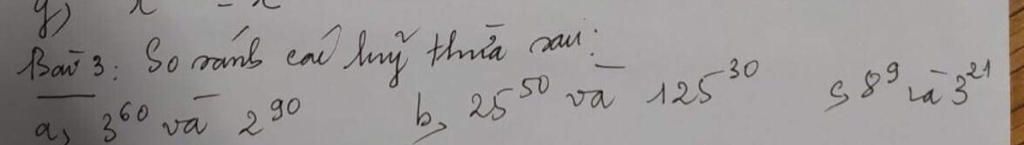 g) x = x
Bài 3: So sánh các luỹ thừa sau:
a, 3^60 và 2^90 b, 25^50 và 125^30 c, 8^9 và 3^21